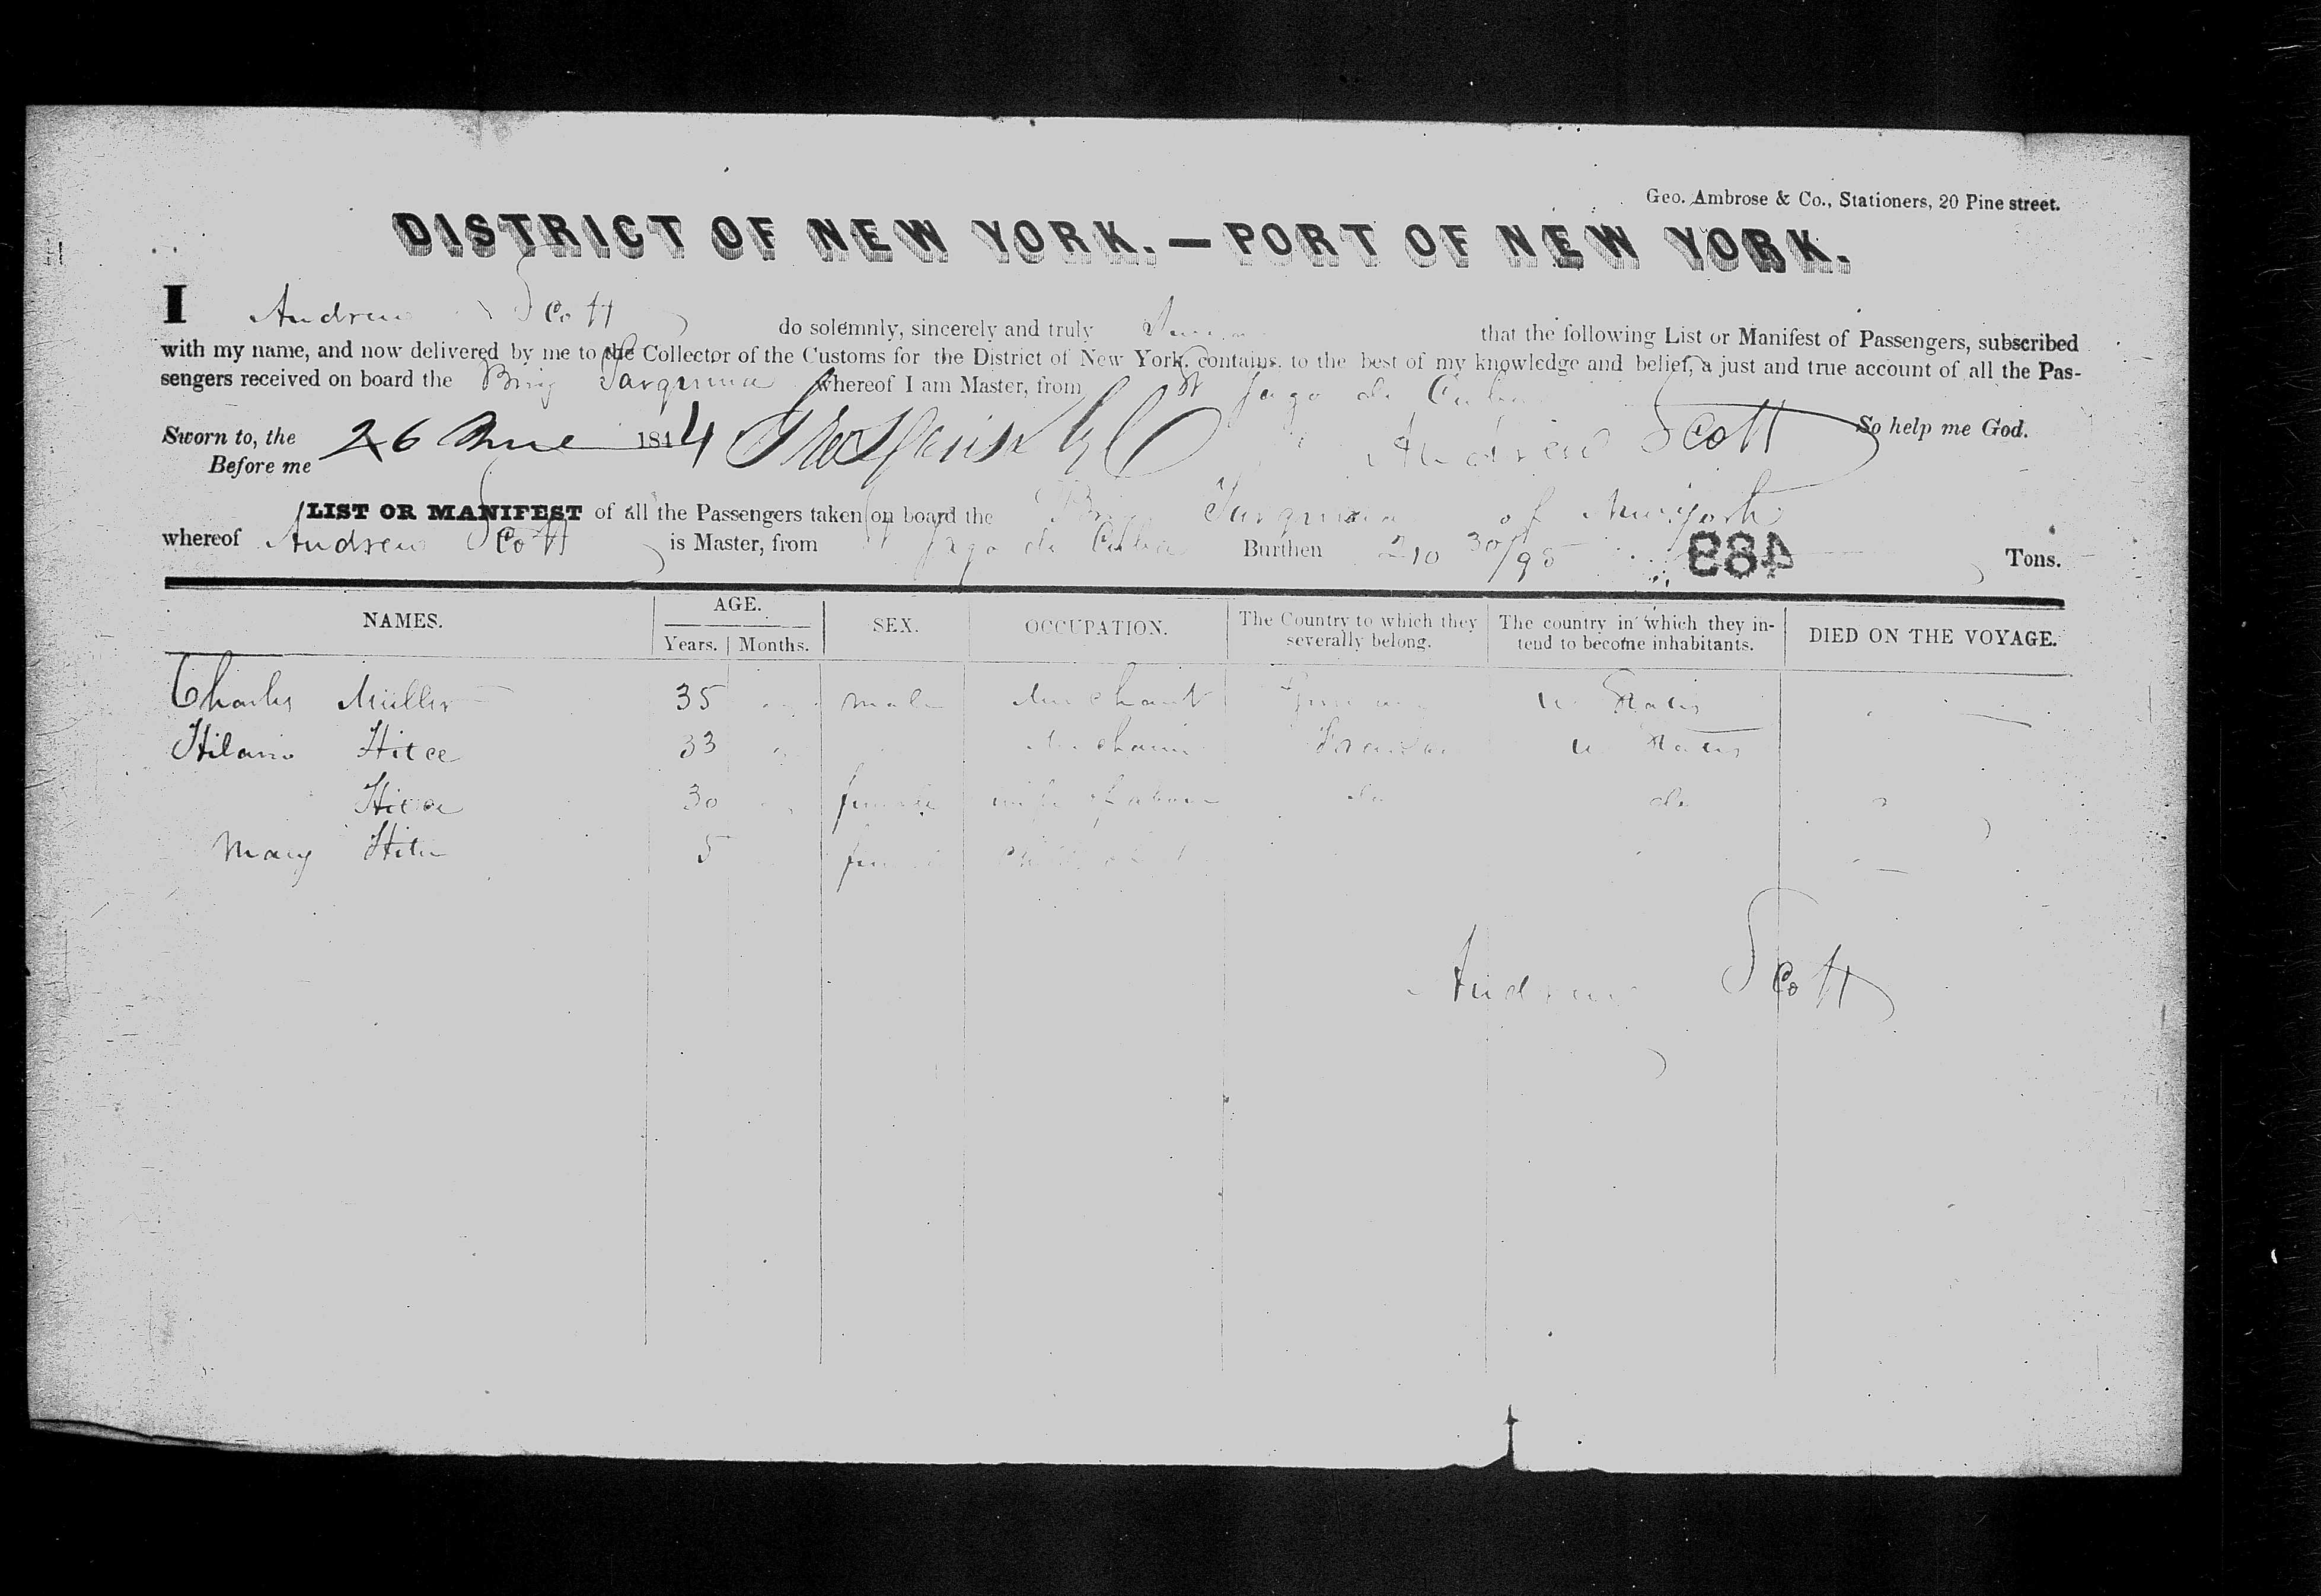 Geo. Ambrose & Co., Stationers, 20 Pine street.
DISTRICT OF NEW YORK.—PORT OF NEW YORK.
I Andrew Scott do solemnly, sincerely and truly that the following List or Manifest of Passengers, subscribed
with my name, and now delivered by me to the Collector of the Customs for the District of New York, contains, to the best of my knowledge and belief, a just and true account of all the Pas-
sengers received on board the Brig whereof I am Master, from St Jago de Cuba
So help me God.
Sworn to, the 26 June 1844 Andrew Scott
Before me
LIST OR MANIFEST of all the Passengers taken on board the Brig of New York
whereof Andrew Scott is Master, from St Jago de Cuba Burthen 210 30/95 Tons.
483
NAMES. AGE. SEX. OCCUPATION. The Country to which they severally belong. The country in which they in-tend to become inhabitants. DIED ON THE VOYAGE.
Years. Months.
Charles Müller 35 male Merchant Germany U States
33 Merchant U States
30 female wife of above do do
Mary 5 female
Andrew Scott